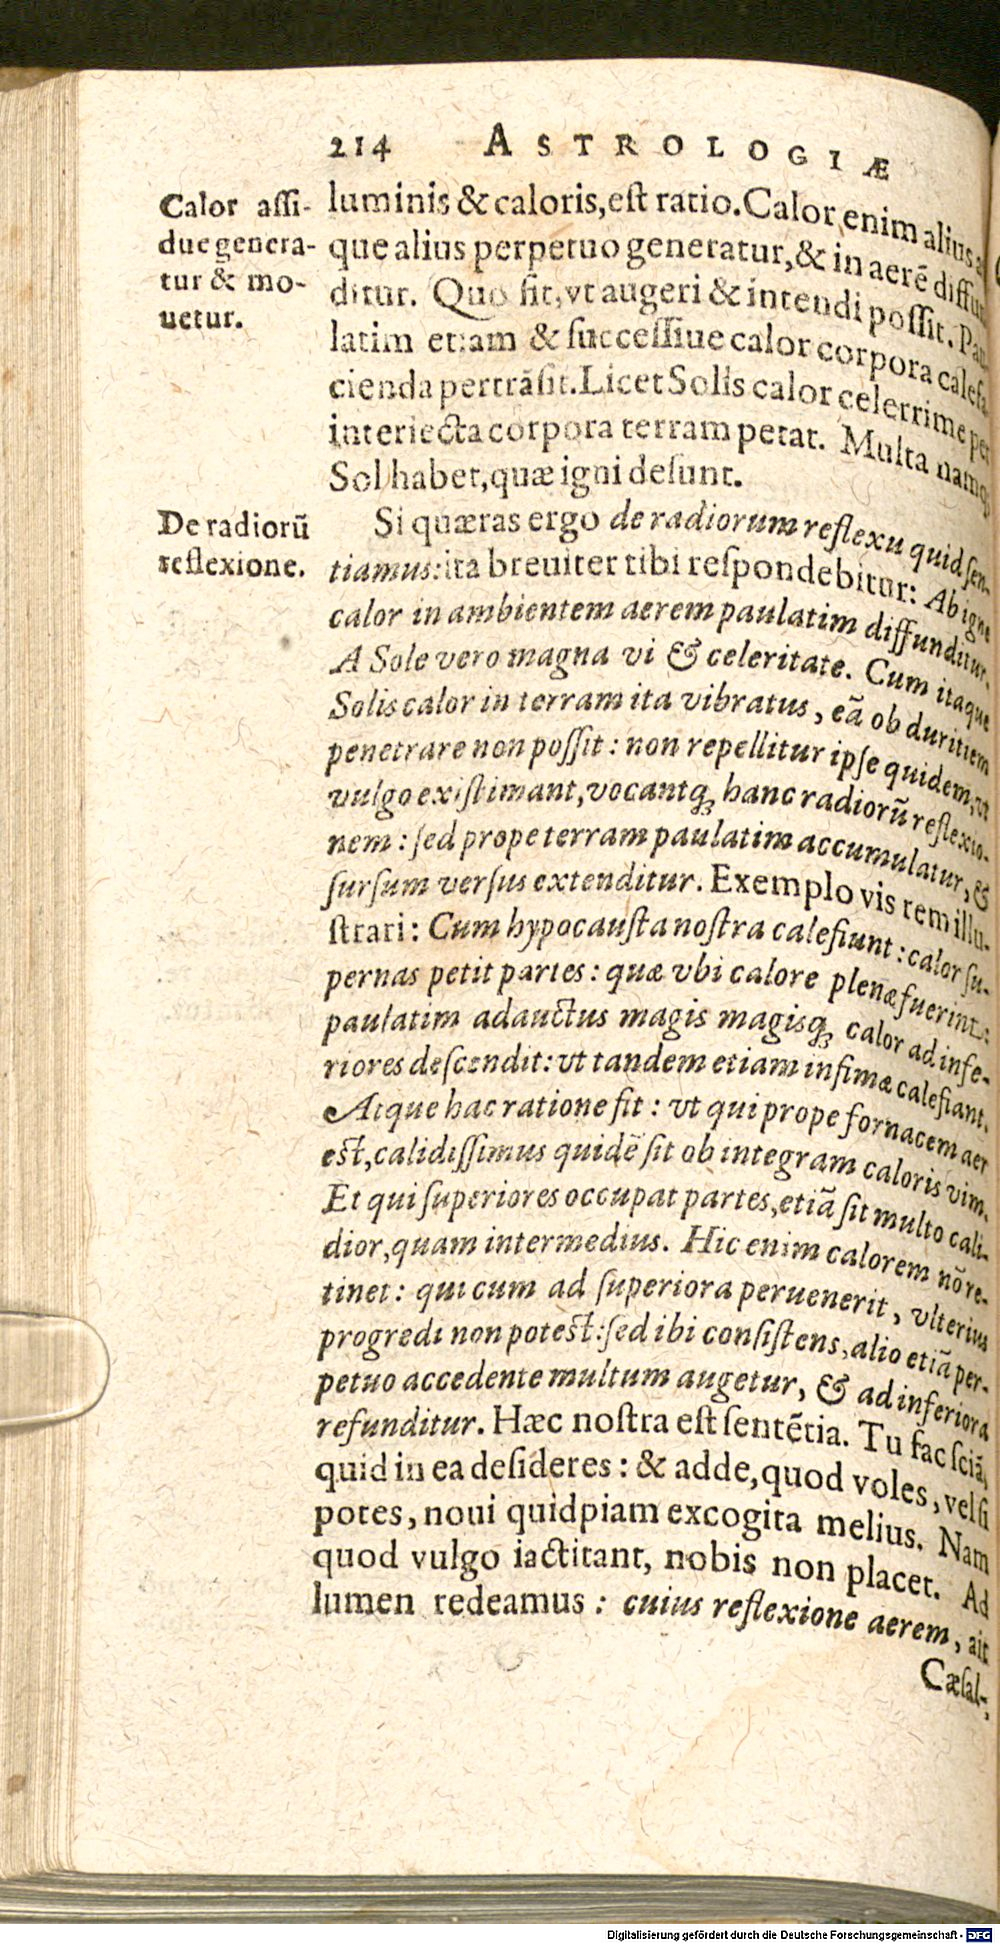 214 ASTROLOGIÆ
Calor assi-
due genera-
tur & mo-
uetur.
luminis & caloris, est ratio. Calor enim alius
que alius perpetuo generatur, & in aerē diffun
ditur. Quo fit, vt augeri & intendi possit. Pau
latim etiam & successiue calor corpora calefa
cienda pertrāsit. Licet Solis calor celerrime per
interiecta corpora terram petat. Multa namq;
Sol habet, quæ igni desunt.
De radiorū
reflexione.
Si quæras ergo de radiorum reflexu quid sen-
tiamus: ita breuiter tibi respondebitur: Ab igne
calor in ambientem aerem paulatim diffunditur.
A Sole vero magna vi & celeritate. Cum itaque
Solis calor in terram ita vibratus, eā ob duritiem
penetrare non possit: non repellitur ipse quidem, vt
vulgo existimant, vocantq; hanc radiorū reflexio-
nem: sed prope terram paulatim accumulatur, &
sursum versus extenditur. Exemplo vis rem illu-
strari: Cum hypocausta nostra calefiunt: calor su-
pernas petit partes: quæ vbi calore plenæ fuerint:
paulatim adauctus magis magisq; calor ad infe-
riores descendit: vt tandem etiam infimæ calefiant.
Atque hac ratione fit: vt qui prope fornacem aer
est, calidissimus quidē sit ob integram caloris vim.
Et qui superiores occupat partes, etiā sit multo cali-
dior, quam intermedius. Hic enim calorem nō re-
tinet: qui cum ad superiora peruenerit, vlterius
progredi non potest: sed ibi consistens, alio etiā per-
petuo accedente multum augetur, & ad inferiora
refunditur. Hæc nostra est sentētia. Tu fac sciā,
quid in ea desideres: & adde, quod voles, vel si
potes, noui quidpiam excogita melius. Nam
quod vulgo iactitant, nobis non placet. Ad
lumen redeamus: cuius reflexione aerem, ait
Cæsal-,
Digitalisierung gefördert durch die Deutsche Forschungsgemeinschaft - DFG